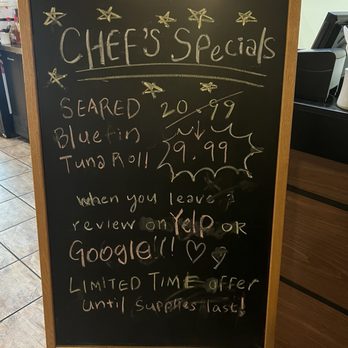 CHEF'S Specials
SEARED 20.99
Bluefin
Tuna Roll 9.99
when you leave a
review on Yelp OR
Google!!!
LIMITED TIME offer
until supplies last!